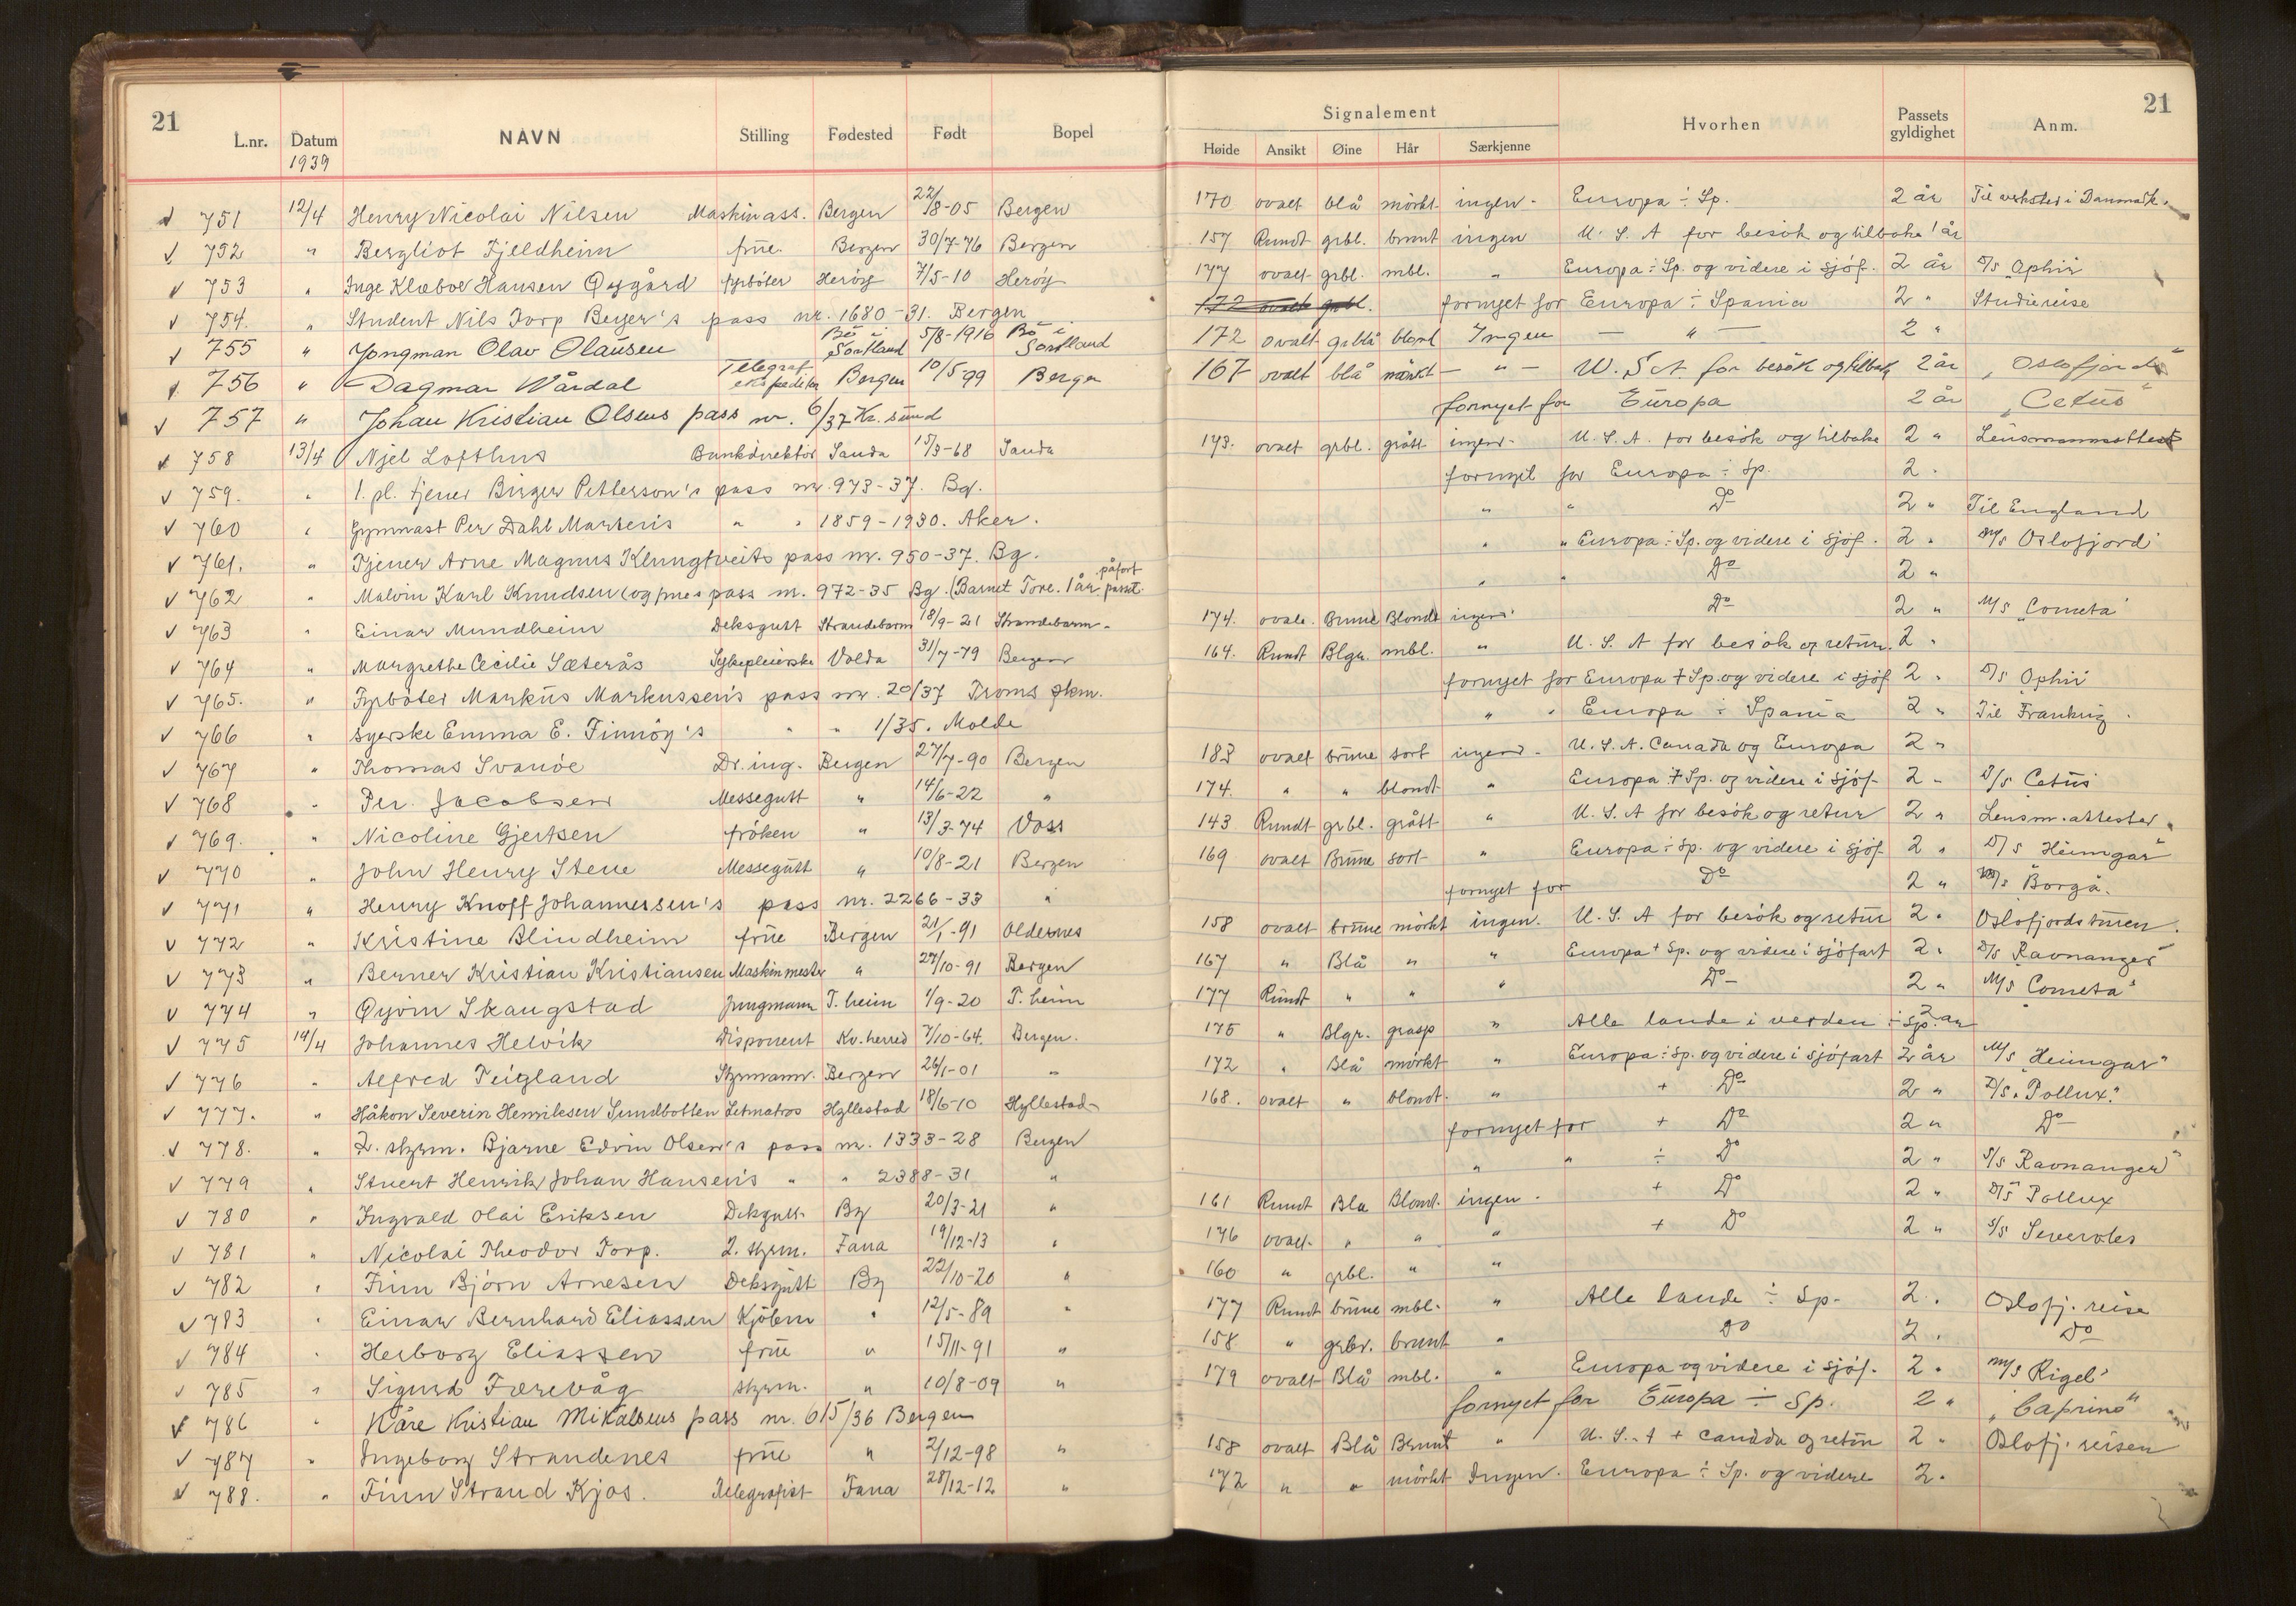 21
L.nr. Datum NAVN Stilling Fødested Født Bopel
1939
751 12/4 Henry Nicolai Nilsen Maskinass. Bergen 22/8-05 Bergen
752 " Bergliot Fjeldheim frue. Bergen 30/7-76 Bergen
753 " Inge Klæboe Hansen Øygård fyrböter Heröy 7/5-10 Heröy
754. " Student Nils Torp Beyer's pass nr. 1680-31. Bergen
755 " Jongman Olav Olausen Bö i Sortland 5/8-1916 Bö i Sortland
756 " Dagmar Wårdal Telegraf ekspeditör Bergen 10/5 99 Bergen
757 " Johan Kristian Olsens pass nr. 6/37 Kr. sund
758 13/4 Njel Lofthus Bankdirektör Sauda 15/3-68 Sauda
759. " 1. pl. tjener Birger Petterson's pass nr. 973-37. Bg.
760 " Gymnast Per Dahl Martens " " 1859-1930. Aker.
761. " Tjener Arne Magnus Klungtveits pass nr. 950-37. Bg.
762 " Malvin Karl Knudsen (og frues pass nr. 972-35 Bg. (Barnet Tore. 1 år påfört passet.
763 " Einar Mundheim Deksgutt Strandebarm 18/9-21 Strandebarm.
764 " Margrethe Cecilie Sæterås Sykepleierske Volda 31/7-79 Bergen
765. " Fyrböter Markus Markussen's pass nr. 20/37 Troms fkm.
766 " Syerske Emma E. Finnöy's " " 1/35. Molde
767 " Thomas Svanöe Dr. ing. Bergen 27/7-90 Bergen
768 " Per. Jacobsen Messegutt " 14/6-22 "
769. " Nicoline Gjertsen fröken " 13/3-74 Voss
770 " John Henry Stene Messegutt " 10/8-21 Bergen
771 " Henry Knoff Johannessen's pass nr. 2266-33 "
772 " Kristine Blindheim frue Bergen 21/1-91 Oldernes
773 " Berner Kristian Kristiansen Maskinmester " 27/10-91 Bergen
774 " Öyvin Skaugstad Jungmann T. heim 1/9-20 T. heim
775 14/4 Johannes Helvik Disponent Kv. herred 7/10-64. Bergen.
776 " Alfred Teigland Styrmann. Bergen 26/1-01 "
777. " Håkon Severin Henriksen Sundbotten Letmatros Hyllestad 18/6-10 Hyllestad
778. " 2. styrm. Bjarne Edvin Olsen's pass nr. 1333-28 Bergen
779 " Stuert Henrik Johan Hansen's " " 2388-31 "
780 " Ingvald Olai Eriksen Deksgutt. Bg 20/3-21 "
781 " Nicolai Theodor Torp. 2. styrm. Fana 19/12-13 "
782 " Finn Björn Arnesen Deksgutt Bg 22/10-20 "
783 " Einar Bernhard Eliassen Kjöbm " 12/5-89 "
784 " Herborg Eliassen frue " 15/11-91 "
785 " Sigurd Færevåg styrm. " 10/8-09 "
786 " Kåre Kristian Mikalsens pass nr. 615/36 Bergen
787 " Ingeborg Strandenes frue " 2/12-98 "
788. " Finn Strand Kjos. Telegrafist Fana 28/12-12 "
21
Signalement
Høide Ansikt Øine Hår Særkjenne Hvorhen Passets gyldighet Anm.
170 ovalt blå mörkt ingen. Europa ÷ Sp. 2 år Til verksted i Danmark.
157 Rundt grbl. brunt ingen U. S. A for besök og tilbake 1 år
177 ovalt grbl. mbl. " Europa ÷ Sp. og videre i sjöf. 2 år D/S Ophir
172 ovalt grbl. fornyet for Europa ÷ Spania 2 " Studiereise
172 ovalt grblå blont Ingen — " — 2 "
167 ovalt blå mörkt — " — U. S. A. for besök og tilbake 2 år "Oslofjord"
fornyet for Europa 2 år "Cetus"
173. ovalt grbl. grått ingen. U. S. A. for besök og tilbake 2 " Lensmannsattest
fornyet for Europa ÷ Sp. 2 "
" " Do 2 " Til England
" " Europa ÷ Sp. og videre i sjöf. 2 " M/S Oslofjord
" " Do 2 "
174. ovalt. Brune Blondt ingen Do 2 " M/S "Cometa"
164. Rundt Blgr. mbl. " U. S. A for besök og retur. 2 "
fornyet for Europa + Sp. og videre i sjöf 2 " D/S Ophir
" " Europa ÷ Spania 2 " Til Frankrig.
183 ovalt brune sort ingen. U. S. A. Canada og Europa 2 "
174. " " blondt " Europa + Sp. og videre i sjöf 2 " D/S Cetus
143 Rundt grbl. grått " U. S. A for besök og retur 2 " Lensm. attester.
169 ovalt Brune sort " Europa ÷ Sp. og videre i sjöf 2 " D/S Heimgar"
fornyet for Do 2 " M/S "Borgå.
158 ovalt brune mörkt ingen. U. S. A for besök og retur 2 " Oslofjordsturen.
167 " Blå " " Europa + Sp. og videre i sjöfart 2 " D/S Ravnanger"
177 Rundt " " " Do 2 " M/S "Cometa"
175 " Blgr. grasp " Alle lande i verden ÷ Sp. 2 år
172 " Blå mörkt " Europa ÷ Sp. og videre i sjöfart 2 år M/S "Heimgar"
168. ovalt " blondt. " + Do 2 " D/S "Pollux."
fornyet for + Do 2 " Do
" " ÷ Do 2 " S/S Ravnanger"
161 Rundt Blå Blondt. ingen. + Do 2 " D/S Pollux
176 ovalt " " " + Do 2 " S/S Severoles
160 " grbl. " "
177 Rundt brune mbl. " Alle lande ÷ Sp. 2 " Oslofj. reise
158. " grbr. brunt " Do 2 " Do
179 ovalt Blå mbl. " Europa og videre i sjöf. 2 " M/S Rigel"
fornyet for Europa ÷ Sp. 2 " "Caprino"
158 ovalt Blå Brunt " U. S. A + Canada og retur 2 " Oslofj. reisen
172 " " mörkt Ingen. Europa ÷ Sp. og videre 2 "